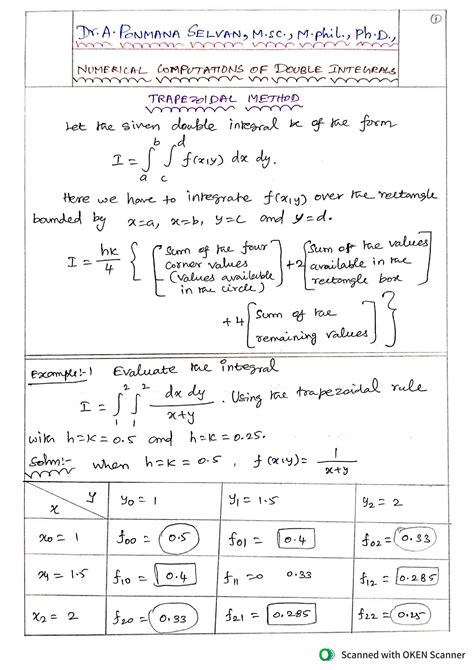 ①
Dr. A. PONMANA SELVAN, M.Sc., M.Phil., Ph.D.,
NUMERICAL COMPUTATIONS OF DOUBLE INTEGRALS
TRAPEZOIDAL METHOD
Let the given double integral be of the form
I = ∫_a^b ∫_c^d f(x,y) dx dy.
Here we have to integrate f(x,y) over the rectangle
bounded by x=a, x=b, y=c and y=d.
I = hk/4 { [Sum of the four corner values (values available in the circle)] + 2 [Sum of the values available in the rectangle box]
+ 4 [Sum of the remaining values] }
Example:-1 Evaluate the integral
I = ∫_1^2 ∫_1^2 dx dy / x+y . Using the trapezoidal rule
with h=k=0.5 and h=k=0.25.
Soln:- when h=k=0.5, f(x,y) = 1/x+y
x y y0 = 1 y1 = 1.5 y2 = 2
x0 = 1 f00 = 0.5 f01 = 0.4 f02 = 0.33
x1 = 1.5 f10 = 0.4 f11 = 0.33 f12 = 0.285
x2 = 2 f20 = 0.33 f21 = 0.285 f22 = 0.25
Scanned with OKEN Scanner